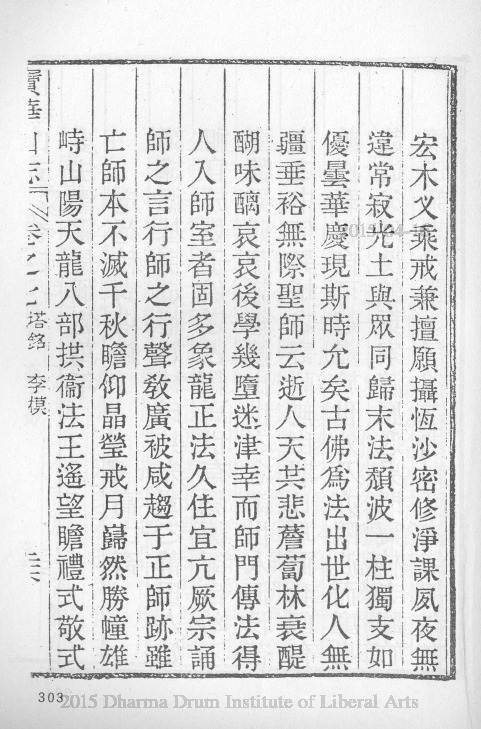 宏木叉乘戒兼擅願攝恆沙密修淨課夙夜無
違常寂光土與眾同歸末法頹波一柱獨支如
優曇華慶現斯時允矣古佛為法出世化人無
疆垂裕無際聖師云逝人天共悲薝蔔林衰醍
醐味醨哀哀後學幾墮迷津幸而師門傳法得
人入師室者固多象龍正法久住宜亢厥宗誦
師之言行師之行聲敎廣被咸趨于正師跡雖
亡師本不滅千秋瞻仰晶瑩戒月巋然勝幢雄
峙山陽天龍八部拱衞法王遙望瞻禮式敬式
寶華山志 卷之七 塔銘 李模
303
2015 Dharma Drum Institute of Liberal Arts